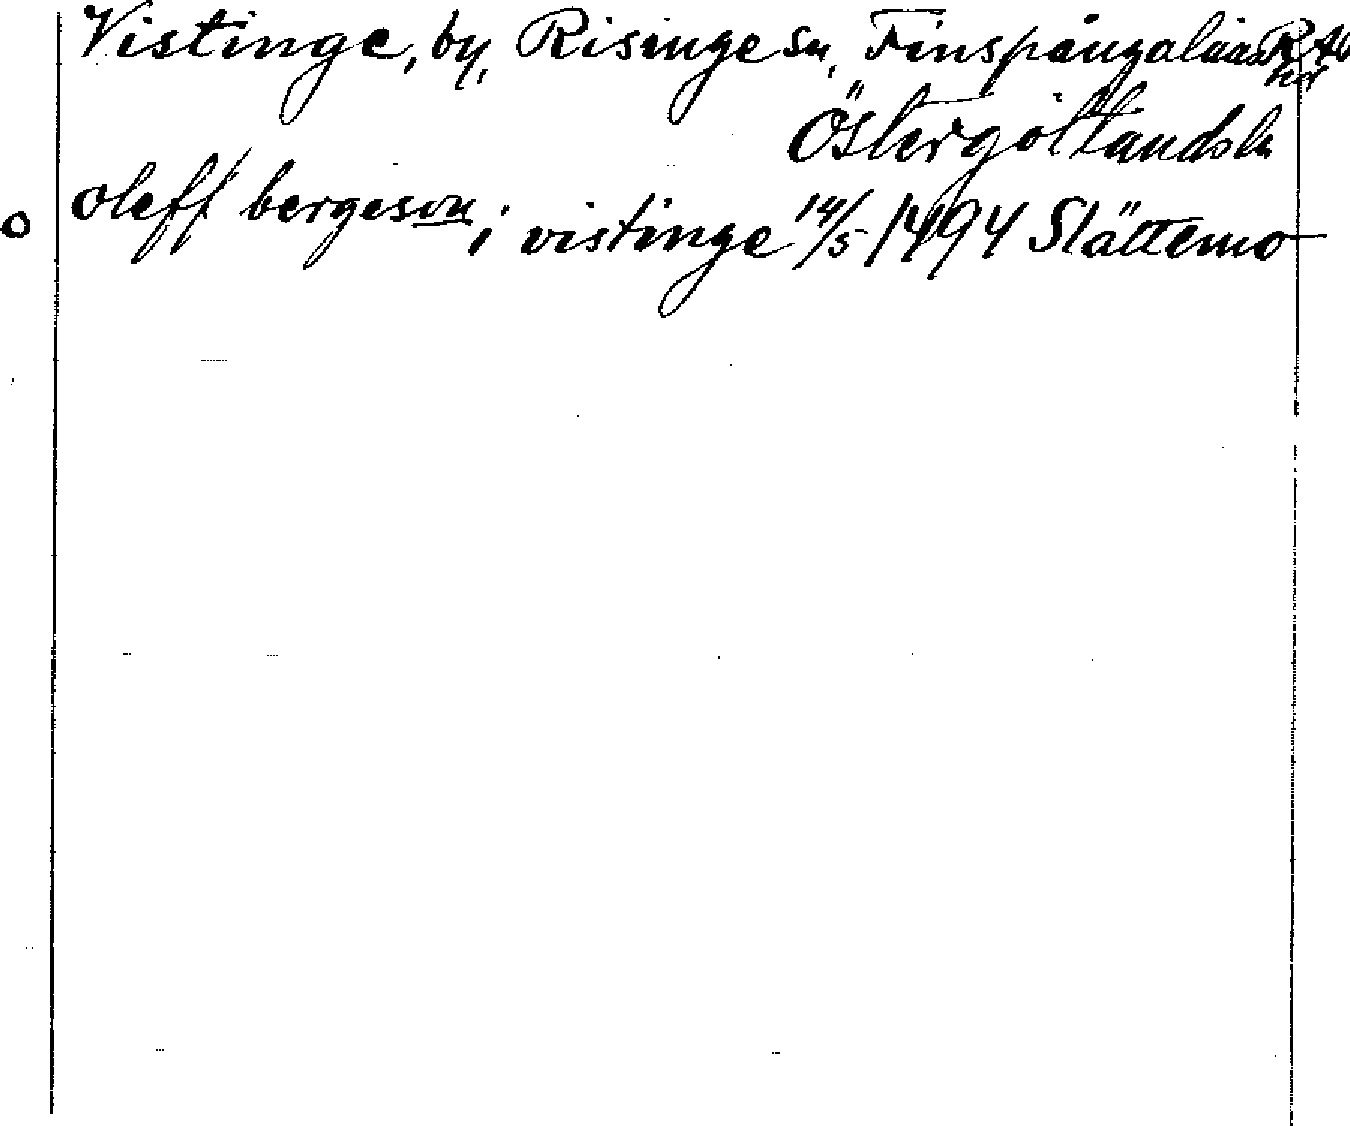 Vistinge, by, Risinge sn, Finspångaläns
Östergötlandsln
o oleff bergeson i vistinge 14/5 1494 Slättemo